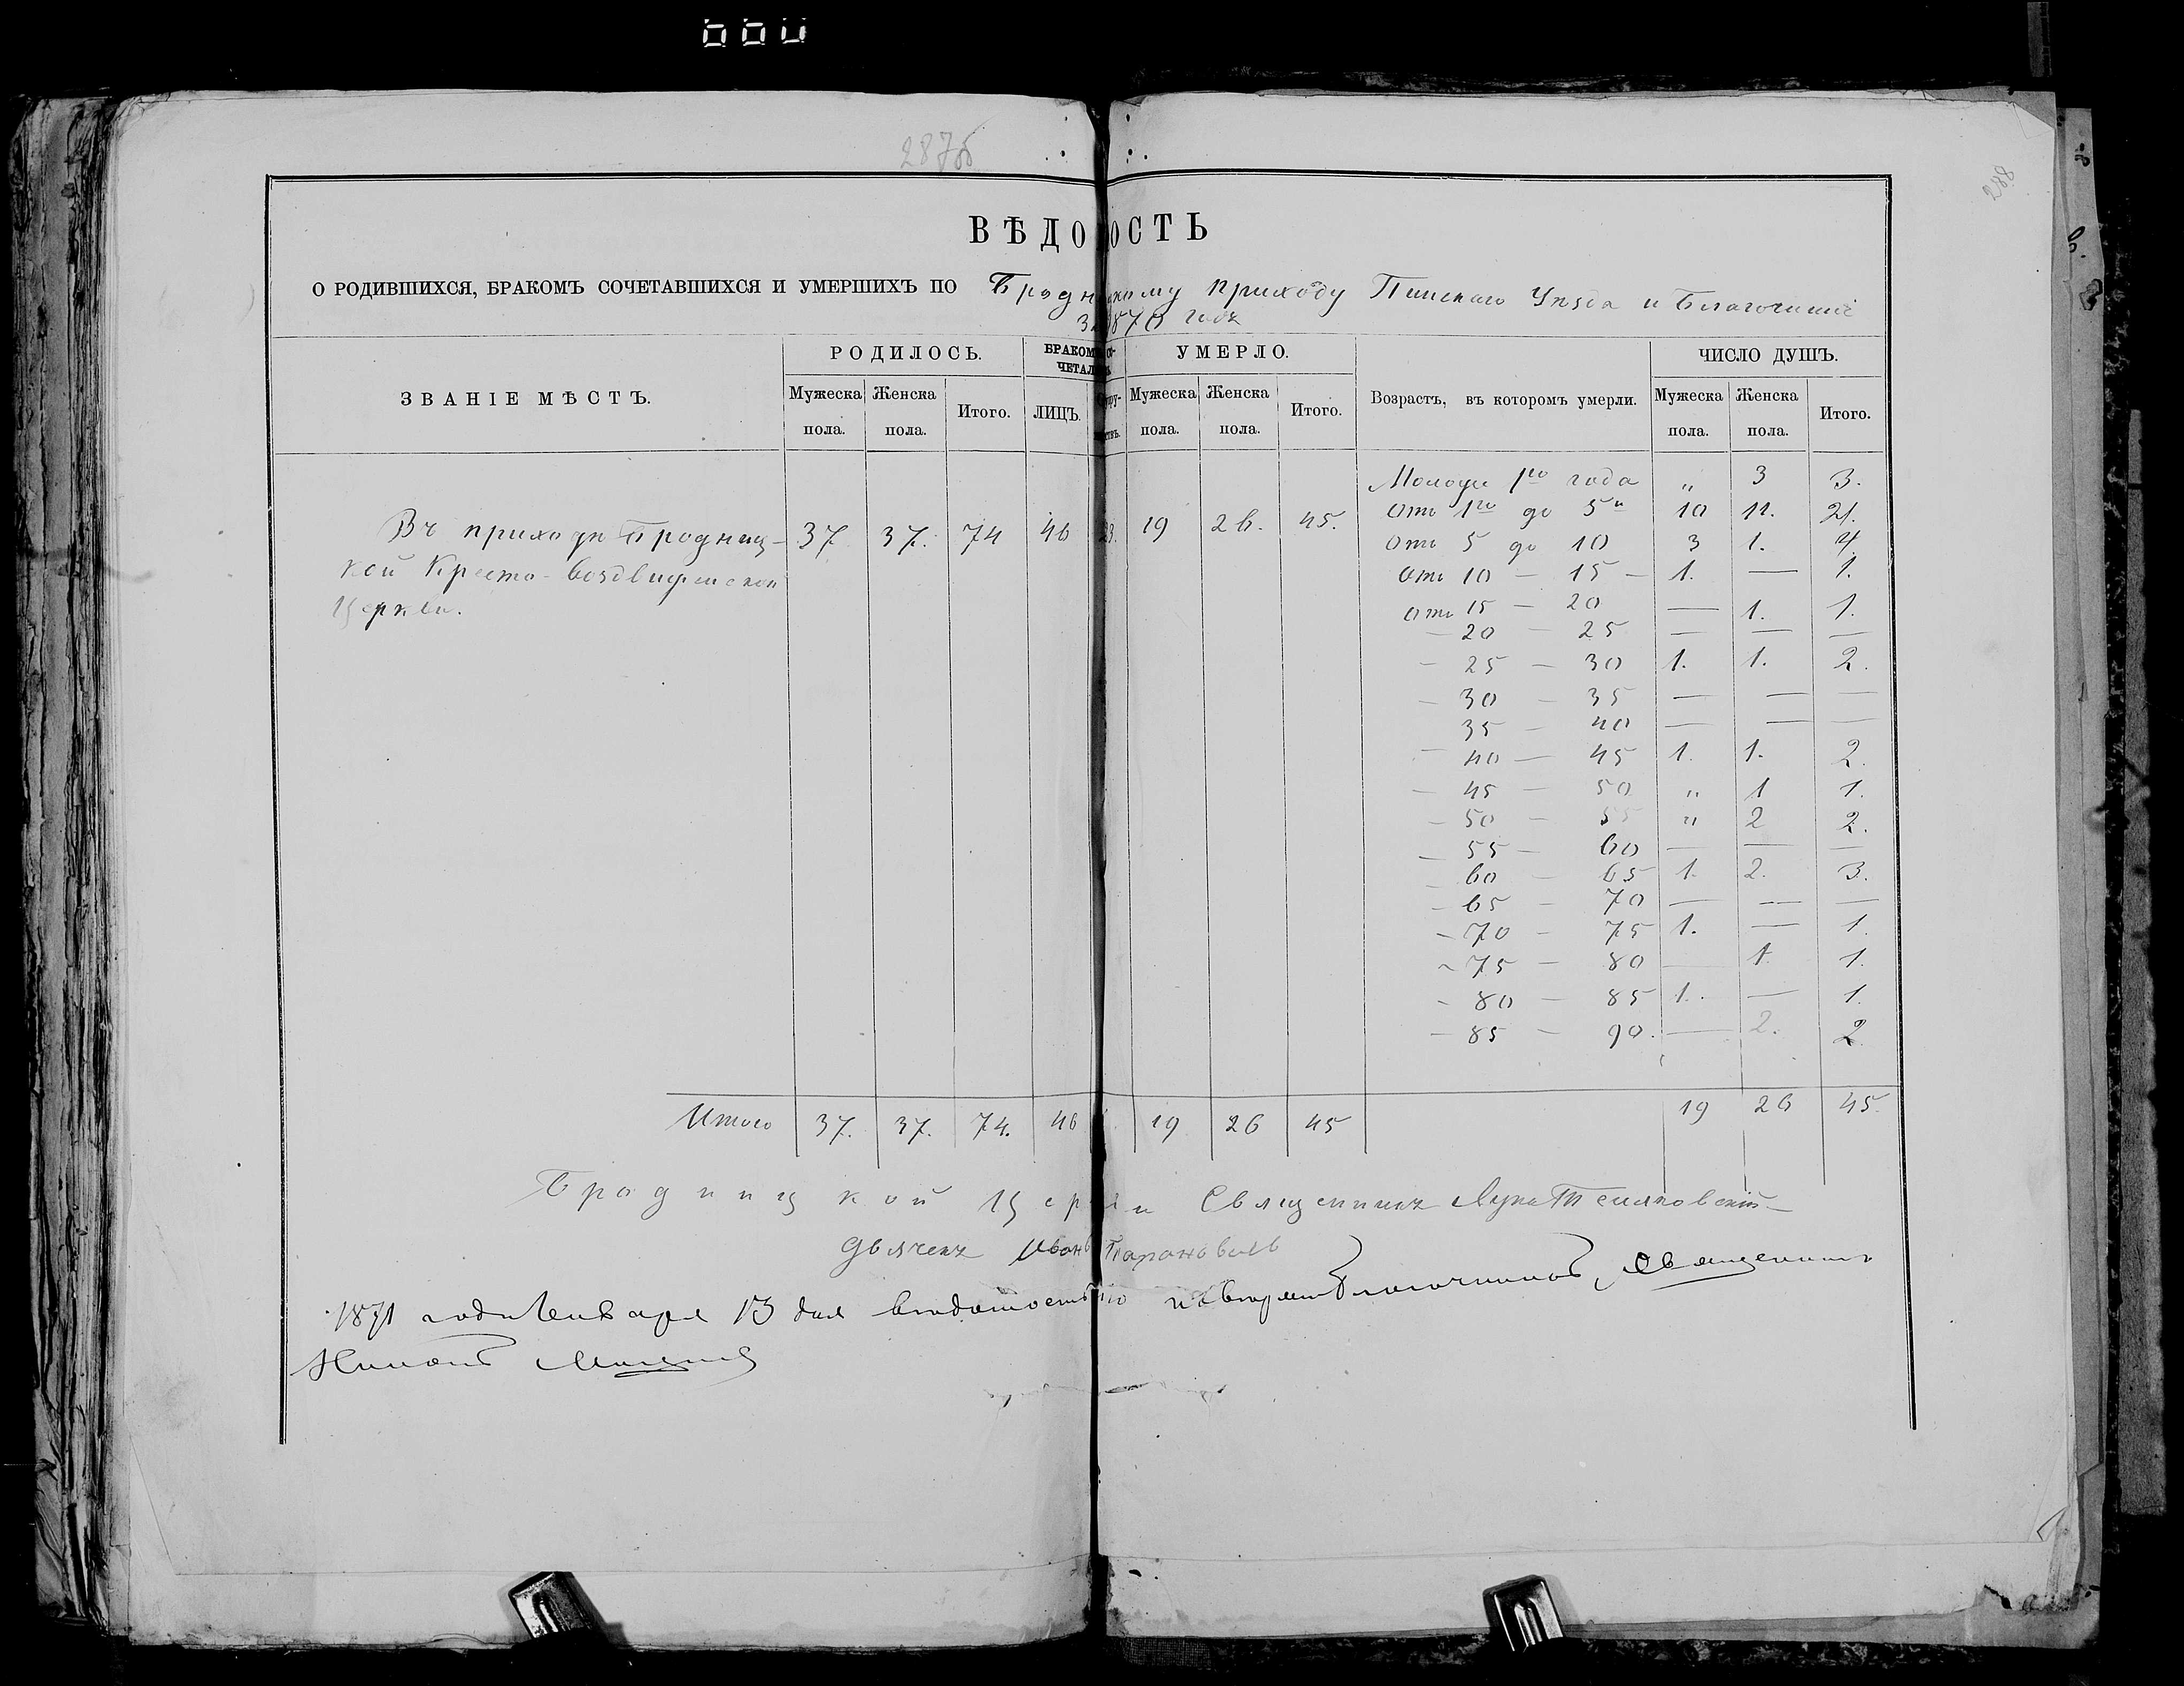 287об
288
ВѢДОМОСТЬ
О РОДИВШИХСЯ, БРАКОМЪ СОЧЕТАВШИХСЯ И УМЕРШИХЪ ПО Бродницкому приходу Пинскаго Уѣзда и Благочинія
за 1870 годъ
ЗВАНІЕ МѢСТЪ. РОДИЛОСЬ. БРАКОМЪ СОЧЕТАЛОСЬ УМЕРЛО. Возрастъ, въ которомъ умерли. ЧИСЛО ДУШЪ.
Мужеска пола. Женска пола. Итого. ЛИЦЪ. Мужеска пола. Женска пола. Итого. Мужеска пола. Женска пола. Итого.
Въ приходѣ Бродницкой Кресто-воздвиженской Церкви. 37 37. 74 46 23. 19 26. 45.
Моложе 1го года „ 3 3.
Отъ 1го до 5и 10 11. 21.
Отъ 5 до 10 3 1. 4.
Отъ 10 — 15 — 1. — 1.
Отъ 15 — 20 — 1. 1.
— 20 — 25 — — —
— 25 — 30 1. 1. 2.
— 30 — 35 — — —
35 — 40 — — —
— 40 — 45 1. 1. 2.
— 45 — 50 „ 1 1.
— 50 — 55 „ 2 2.
— 55 — 60 — — —
— 60 — 65 1. 2. 3.
— 65 — 70 — — —
— 70 — 75 1. — 1.
— 75 — 80 — 1. 1.
— 80 — 85 1. — 1.
— 85 — 90. — 2. 2.
Итого 37. 37. 74. 46 19 26 45 19 26 45.
Бродницкой Церкви Священникъ Лука
Дьячекъ Иванъ Барановичъ
1871 года Января 13 дня вѣдомость Благочинный Священникъ